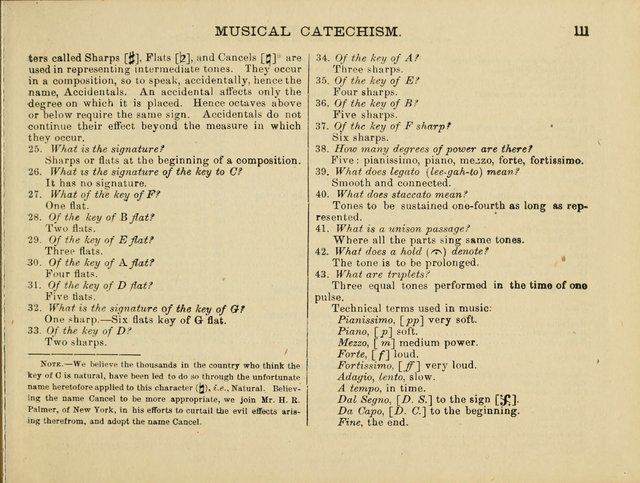 MUSICAL CATECHISM. 111
ters called Sharps [♯], Flats [♭], and Cancels [♮]* are
used in representing intermediate tones. They occur
in a composition, so to speak, accidentally, hence the
name, Accidentals. An accidental affects only the
degree on which it is placed. Hence octaves above
or below require the same sign. Accidentals do not
continue their effect beyond the measure in which
they occur.
25. What is the signature?
Sharps or flats at the beginning of a composition.
26. What is the signature of the key to C?
It has no signature.
27. What of the key of F?
One flat.
28. Of the key of B flat?
Two flats.
29. Of the key of E flat?
Three flats.
30. Of the key of A flat?
Four flats.
31. Of the key of D flat?
Five flats.
32. What is the signature of the key of G?
One sharp.—Six flats key of G flat.
33. Of the key of D?
Two sharps.
NOTE.—We believe the thousands in the country who think the
key of C is natural, have been led to do so through the unfortunate
name heretofore applied to this character (♮), i.e., Natural. Believ-
ing the name Cancel to be more appropriate, we join Mr. H. R.
Palmer, of New York, in his efforts to curtail the evil effects aris-
ing therefrom, and adopt the name Cancel.
34. Of the key of A?
Three sharps.
35. Of the key of E?
Four sharps.
36. Of the key of B?
Five sharps.
37. Of the key of F sharp?
Six sharps.
38. How many degrees of power are there?
Five: pianissimo, piano, mezzo, forte, fortissimo.
39. What does legato (lee-gah-to) mean?
Smooth and connected.
40. What does staccato mean?
Tones to be sustained one-fourth as long as rep-
resented.
41. What is a unison passage?
Where all the parts sing same tones.
42. What does a hold (𝄐) denote?
The tone is to be prolonged.
43. What are triplets?
Three equal tones performed in the time of one
pulse.
Technical terms used in music:
Pianissimo, [pp] very soft.
Piano, [p] soft.
Mezzo, [m] medium power.
Forte, [f] loud.
Fortissimo, [ff] very loud.
Adagio, lento, slow.
A tempo, in time.
Dal Segno, [D. S.] to the sign [𝄋].
Da Capo, [D. C.] to the beginning.
Fine, the end.